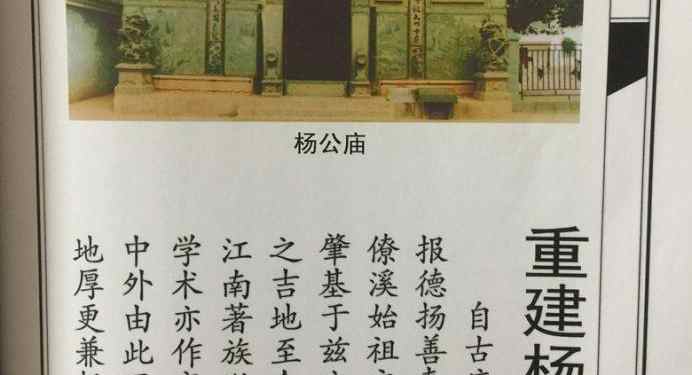 杨公庙
重建杨
自古
报德扬善
僚溪始祖
肇基于兹
之吉地至
江南著族
学术亦作
中外由此
地厚更兼